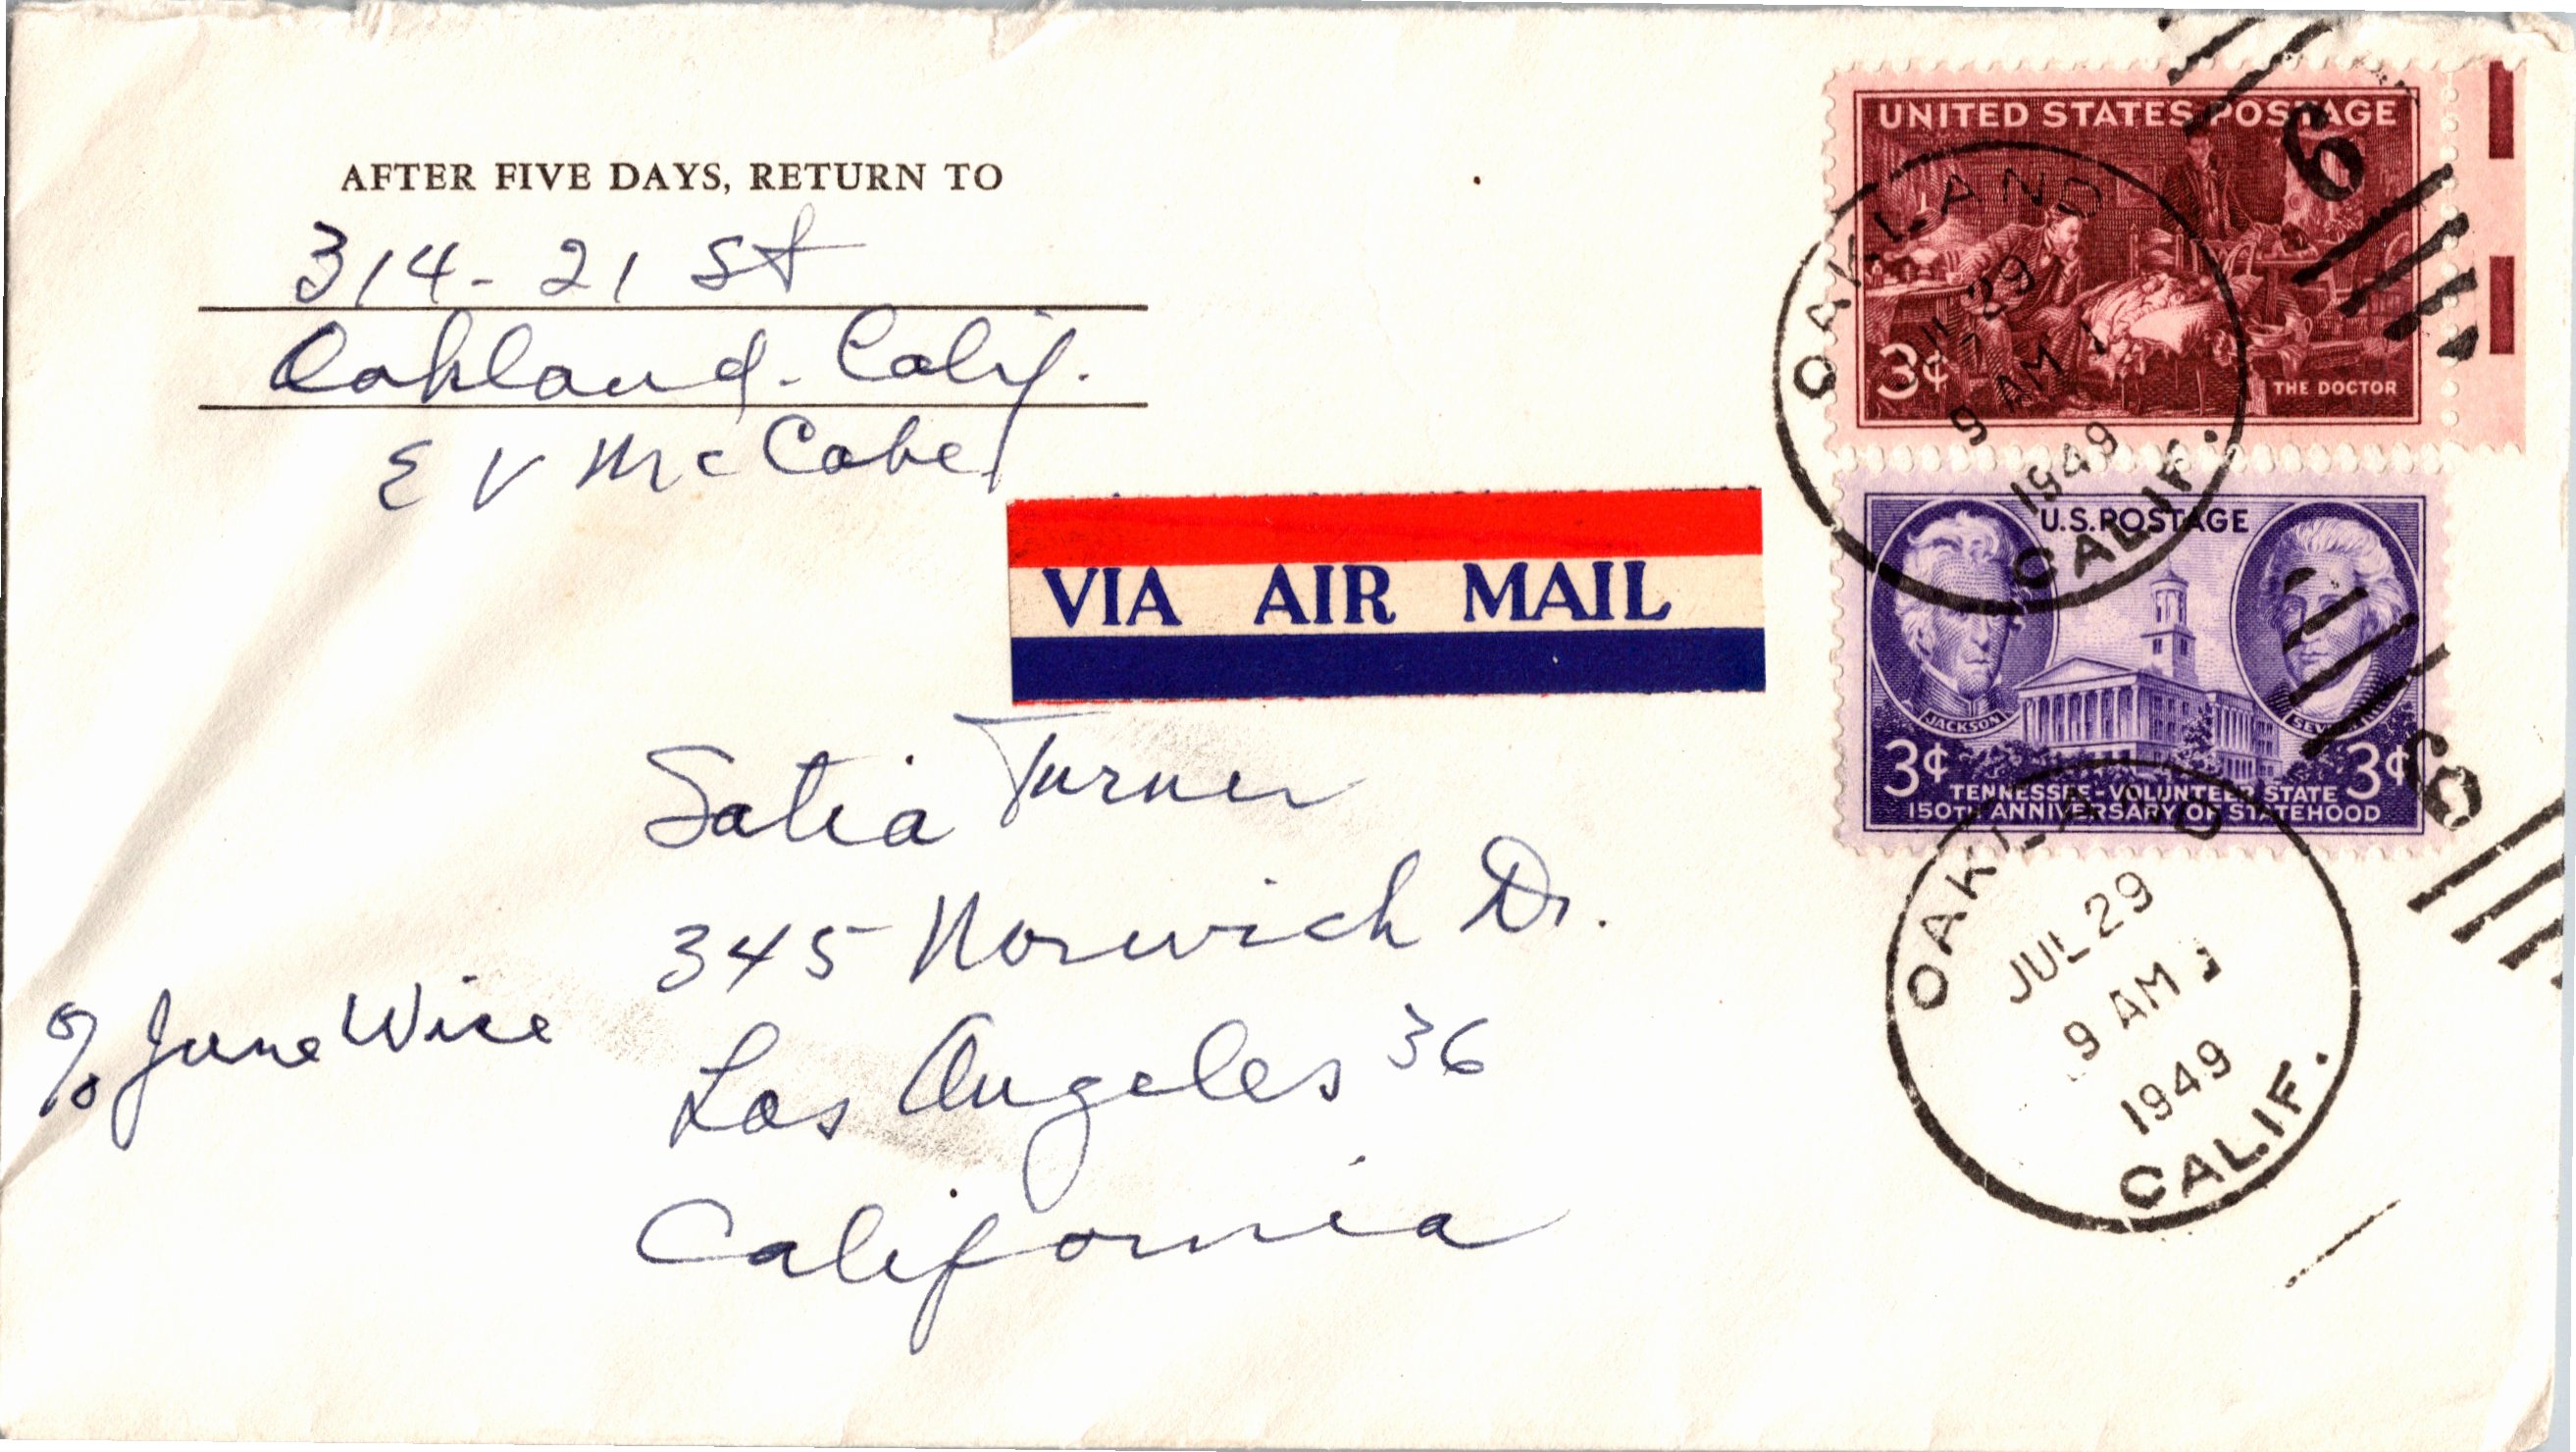 AFTER FIVE DAYS, RETURN TO
314- 21 St
Oakland. Calif.
E V McCabe
VIA AIR MAIL
Satia Turner
345 Norwich Dr.
Los Angeles 36
California
% June Wise
UNITED STATES POSTAGE
3¢
THE DOCTOR
OAKLAND
29
9 AM
1949
CALIF.
6
U.S.POSTAGE
JACKSON
3¢ 3¢
TENNESSEE-VOLUNTEER STATE
150TH ANNIVERSARY OF STATEHOOD
OAKLAND
JUL 29
9 AM
1949
CALIF.